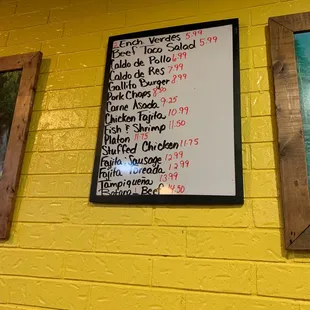 Ench Verdes 5.99
Beef Taco Salad 5.99
Caldo de Pollo 6.99
Caldo de Res 7.99
Gallito Burger 8.99
Pork Chops 8.50
Carne Asada 9.25
Chicken Fajita 10.99
Fish & Shrimp 11.50
Platon 11.75
Stuffed Chicken 11.75
Fajita Sausage 12.99
Fajita Toreada 12.99
Tampiqueña 13.99
Beef 14.50